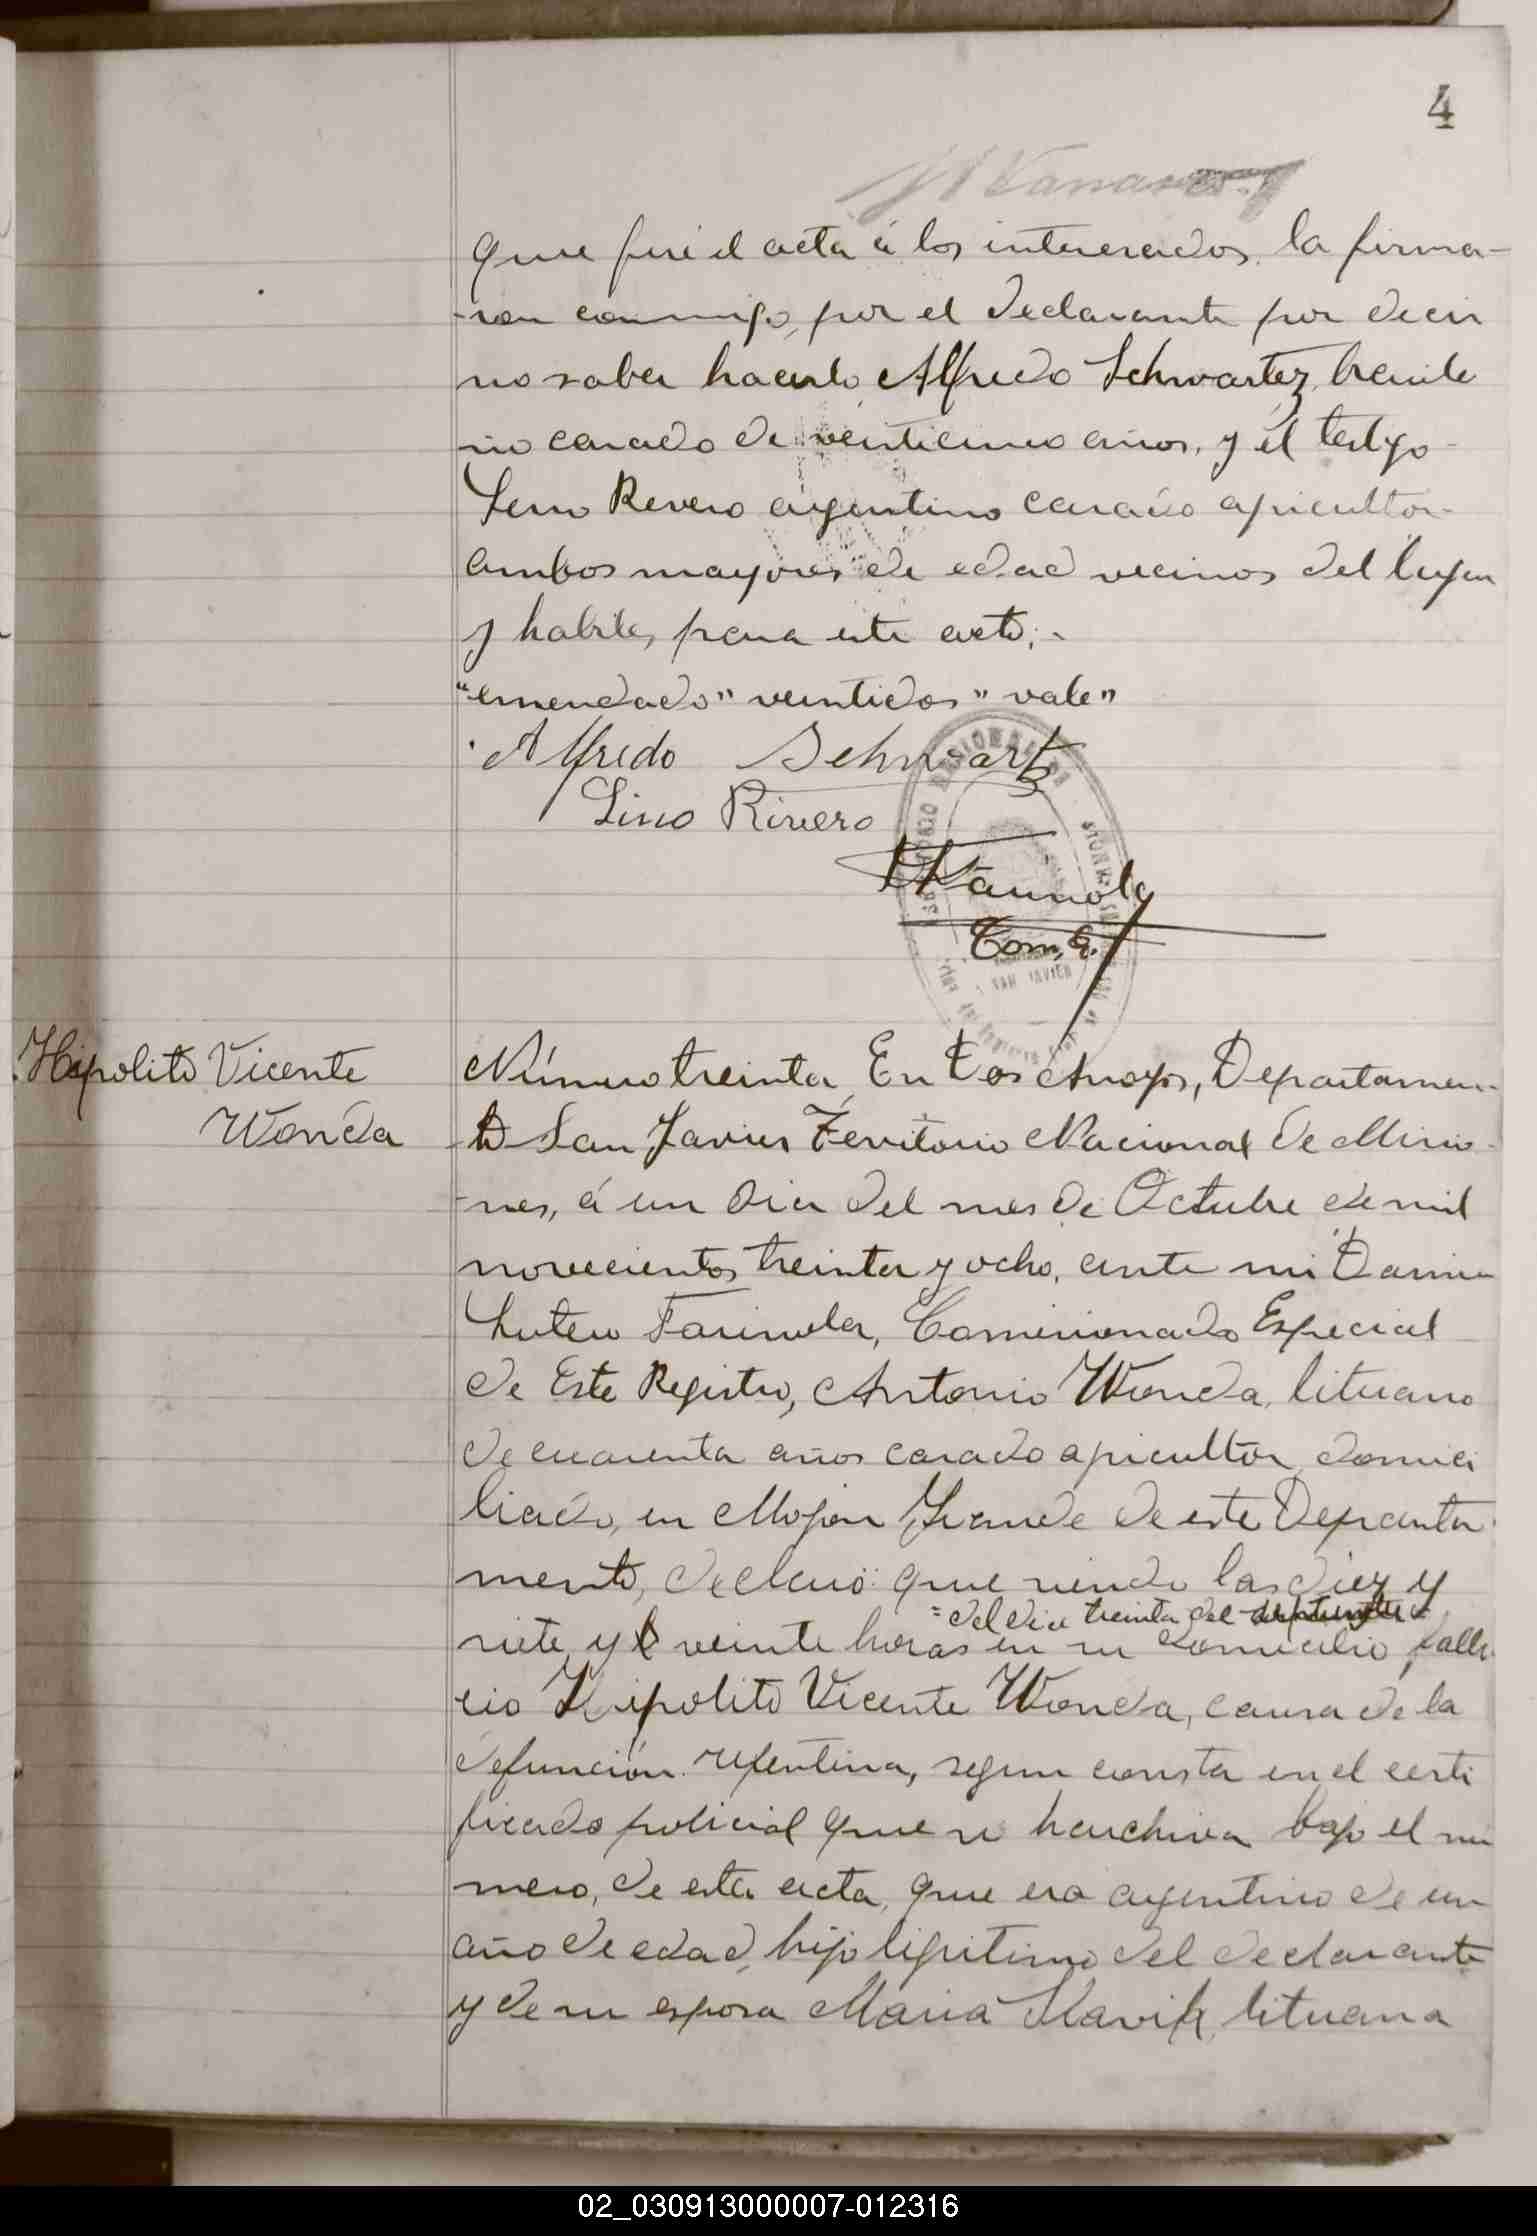 4
que fué el acta á los interesados, la firma-
-ron conmigo, por el declarante por decir
no saber hacerlo Alfredo Schwartez, brasile
ño casado de venticinco años, y el testigo
Leno Revero argentino casado agricultor
ambos mayores de edad vecinos del lugar
y habiles para este acto;-
"emendado" veintidos "vale"
Alfredo Schwartz
Lino Rivero
Com. E.
SAN JAVIER
Hipolito Vicente
Wonda
Número treinta, En Tres Arroyos, Departamen-
to San Javier Territorio Nacional de Misio-
-nes, á un dia del mes de Octubre de mil
novecientos treinta y ocho, ante mi
Comisionado Especial
de Este Registro, Antonio Wonda, lituano
de cuarenta años casado agricultor, domici
liado, en Mojon Grande de este Departa
mento, declaró: que siendo las diez y
=del dia treinta del septiembre=
siete y veinte horas en su domicilio, falle
cio Hipolito Vicente Wonda, causa de la
defunción repentina, segun consta en el certi
ficado policial que se harchiva bajo el nu
mero, de esta acta, que era argentino de un
año de edad, hijo ligitimo del declarante
y de su esposa Maria Slavik, lituana
02_030913000007-012316